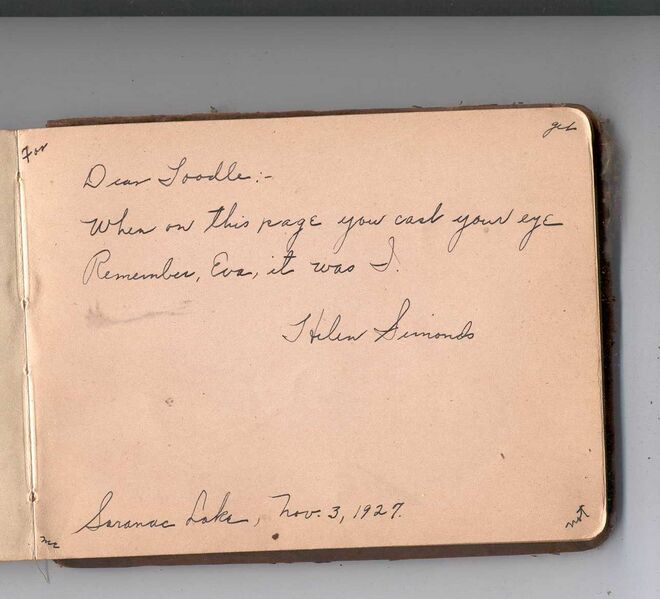 For
get
Dear Toodle:-
When on this page you cast your eye
Remember, Eva, it was I.
Helen Simonds
Saranac Lake, Nov. 3, 1927.
me
not